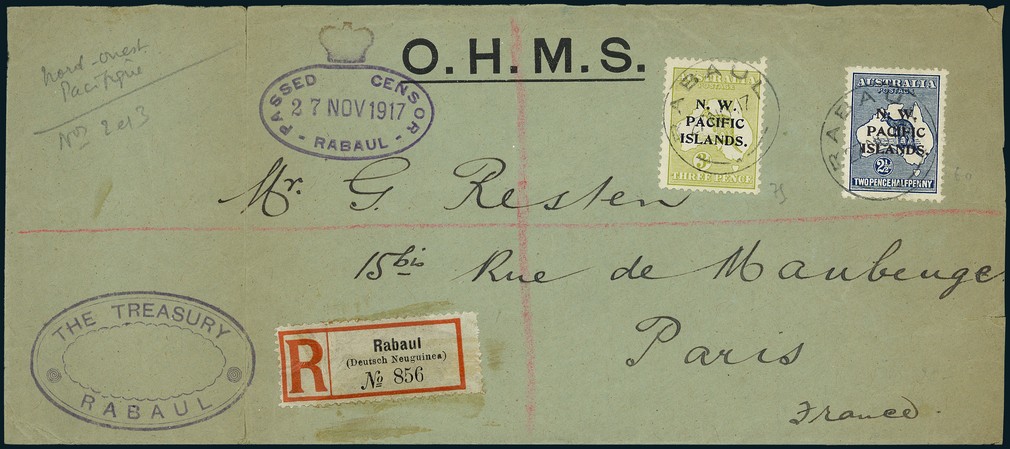 nord-ouest
Pacifique
Nos 2 et 3
O.H.M.S.
PASSED CENSOR
27 NOV 1917
- RABAUL -
RABAUL
N. W.
PACIFIC
ISLANDS.
3
THREE PENCE
RABAUL
AUSTRALIA
POSTAGE
N. W.
PACIFIC
ISLANDS.
2½
TWO PENCE HALFPENNY
75
60
Mr. G. Resten
15bis Rue de Maubenge
Paris
France.
THE TREASURY
RABAUL
R
Rabaul
(Deutsch Neuguinea)
No 856